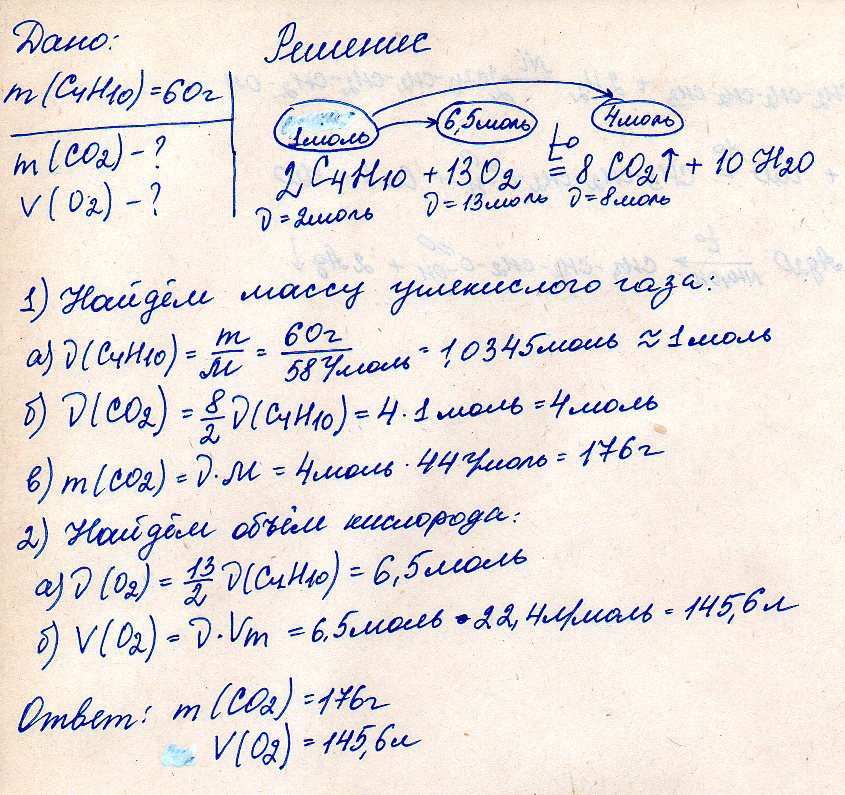 Дано:
Решение
m(C4H10)=60г
m(CO2)-?
V(O2)-?
1моль
6,5моль
4моль
2C4H10 + 13O2 t° = 8CO2↑ + 10H2O
ν=2моль ν=13моль ν=8моль
1) Найдём массу углекислого газа:
а) ν(C4H10) = m/M = 60г/58г/моль = 1,0345моль ≈ 1моль
б) ν(CO2) = 8/2 ν(C4H10) = 4·1моль = 4моль
в) m(CO2) = ν·M = 4моль·44г/моль = 176г
2) Найдём объём кислорода:
а) ν(O2) = 13/2 ν(C4H10) = 6,5моль
б) V(O2) = ν·Vm = 6,5моль·22,4л/моль = 145,6л
Ответ: m(CO2) = 176г
V(O2) = 145,6л